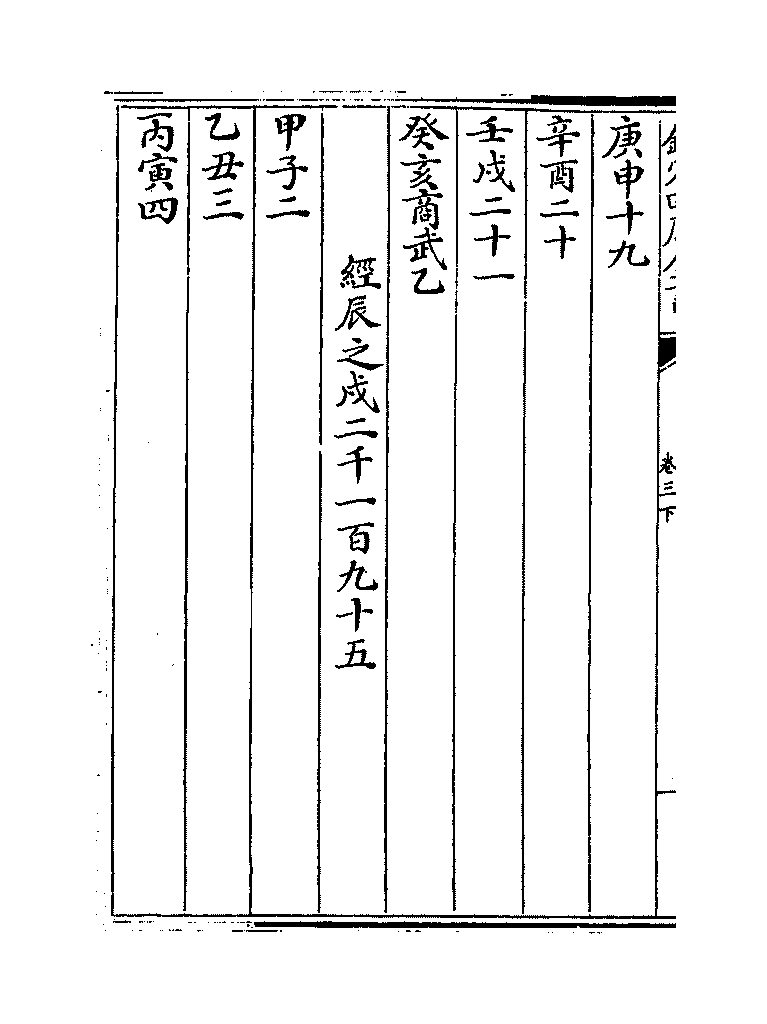 庚申十九
辛酉二十
壬戌二十一
癸亥商武乙
經辰之戌二千一百九十五
甲子二
乙丑三
丙寅四
卷三下